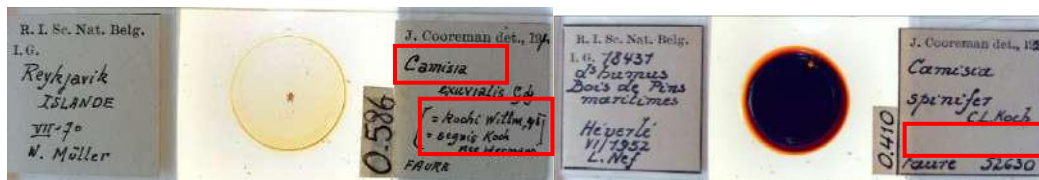 R. I. Sc. Nat. Belg.
I. G.
Reykjavik
ISLANDE
VII-70
W. Müller
0.586
J. Cooreman det., 19
Camisia
exuvialis
[= Kochi Willm,
= segnis Koch
nec Hermann
FAURE
R. I. Sc. Nat. Belg.
I. G. 18437
ds humus
Bois de Pins
maritimes
Héverlé
VI/1952
L. Nef
0.410
J. Cooreman det., 19
Camisia
spinifer
C.L. Koch
Faure 52630